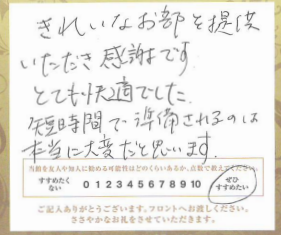 きれいなお部を提供
いただき感謝です。
とても快適でした。
短時間で準備されるのは
本当に大変だと思います。
当館を友人や知人に勧める可能性はどのくらいあるか、点数で教えてください。
すすめたくない 0 1 2 3 4 5 6 7 8 9 10 ぜひすすめたい
ご記入ありがとうございます。フロントへお渡しください。
ささやかなお礼をさせていただきます。